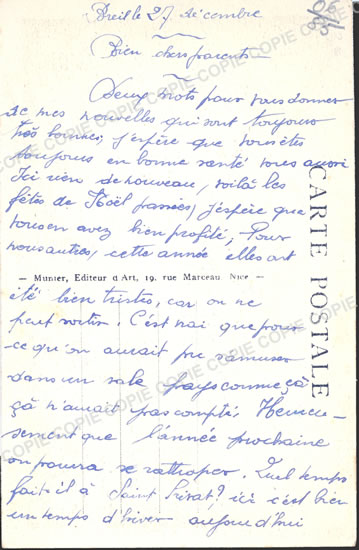 le 27 décembre
Bien chers parents
Deux mots pour vous donner
de mes nouvelles qui sont toujours
très bonnes, j'espère que vous êtes
toujours en bonne santé vous aussi
Ici rien de nouveau, voilà les
fêtes de Noël passées, j'espère que
vous en avez bien profité, Pour
nous autres, cette année elles ont
— Munier, Editeur d'Art, 19, rue Marceau, Nice —
été bien tristes, car on ne
peut sortir. C'est vrai que pour
ce qu'on aurait pu s'amuser
dans un sale pays comme ça,
çà n'aurait pas compté. Heureu-
sement que l'année prochaine
on pourra se rattraper. Quel temps
fait-il à Saint Privat? ici c'est bien
un temps d'hiver aujourd'hui
CARTE POSTALE
COPIE COPIE COPIE COPIE COPIE